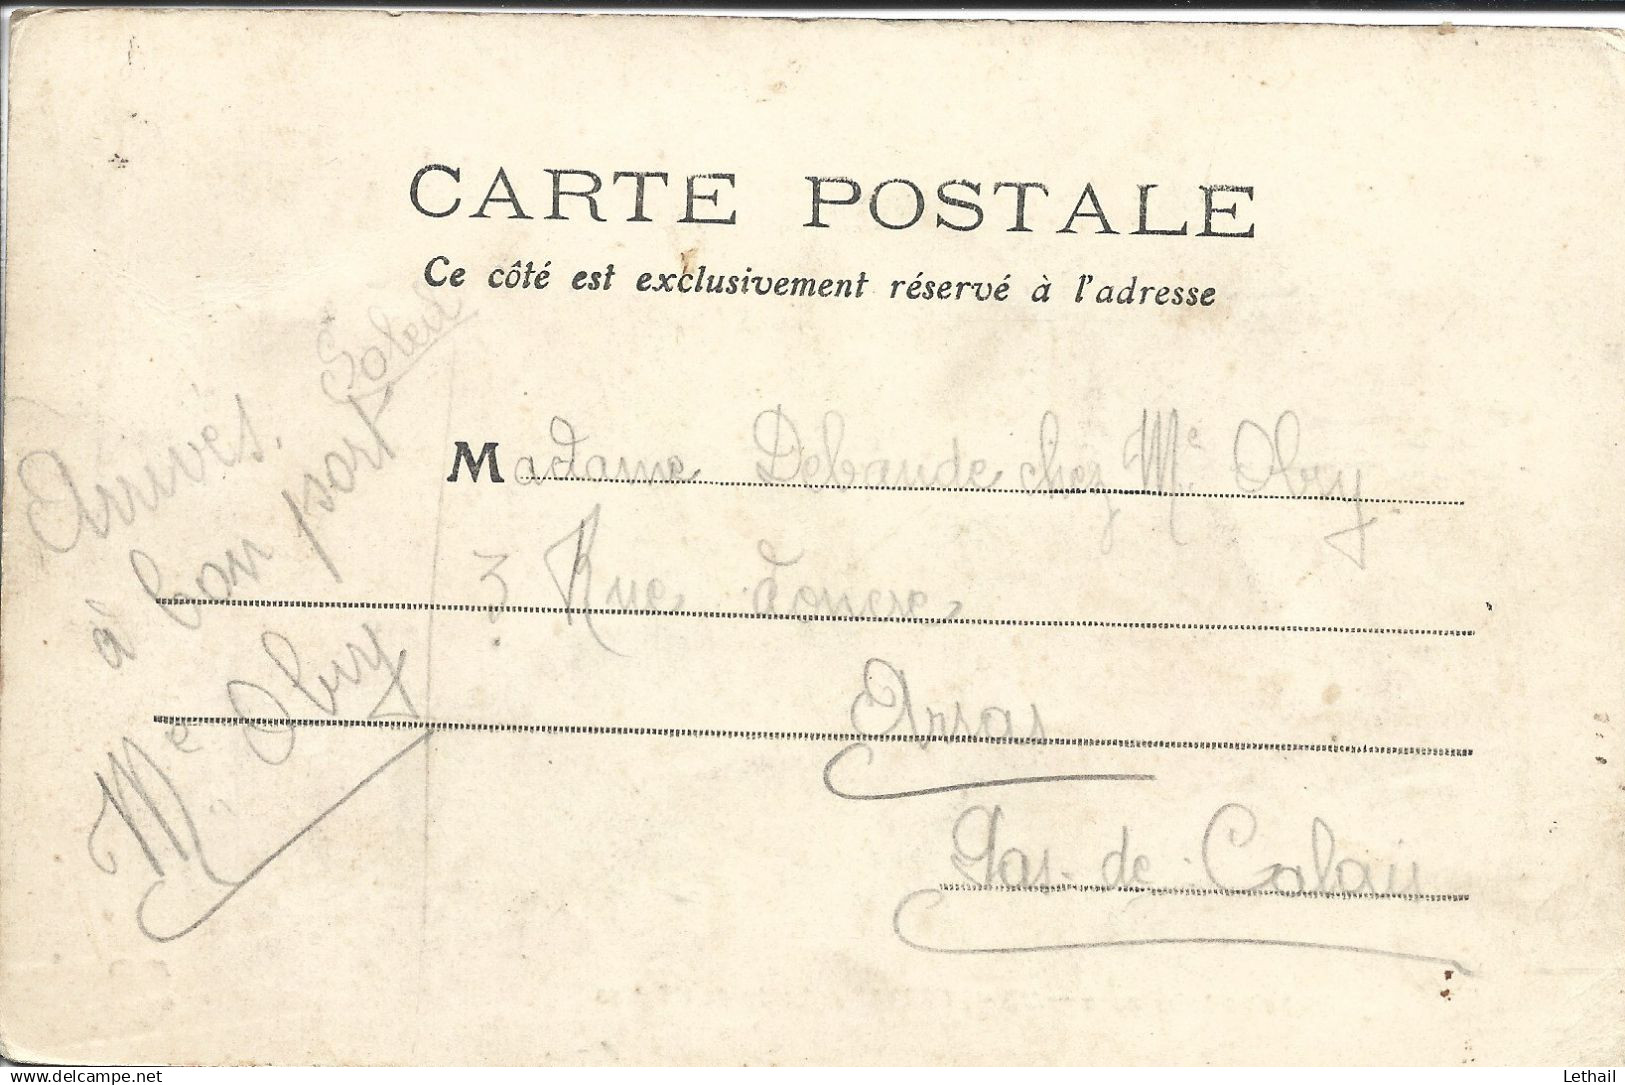 CARTE POSTALE
Ce côté est exclusivement réservé à l'adresse
Arrivés
à bon port
Me Obry
Madame Debaude chez Me Obry
3 Rue
Arras
Pas-de-Calais
www.delcampe.net
Lethail